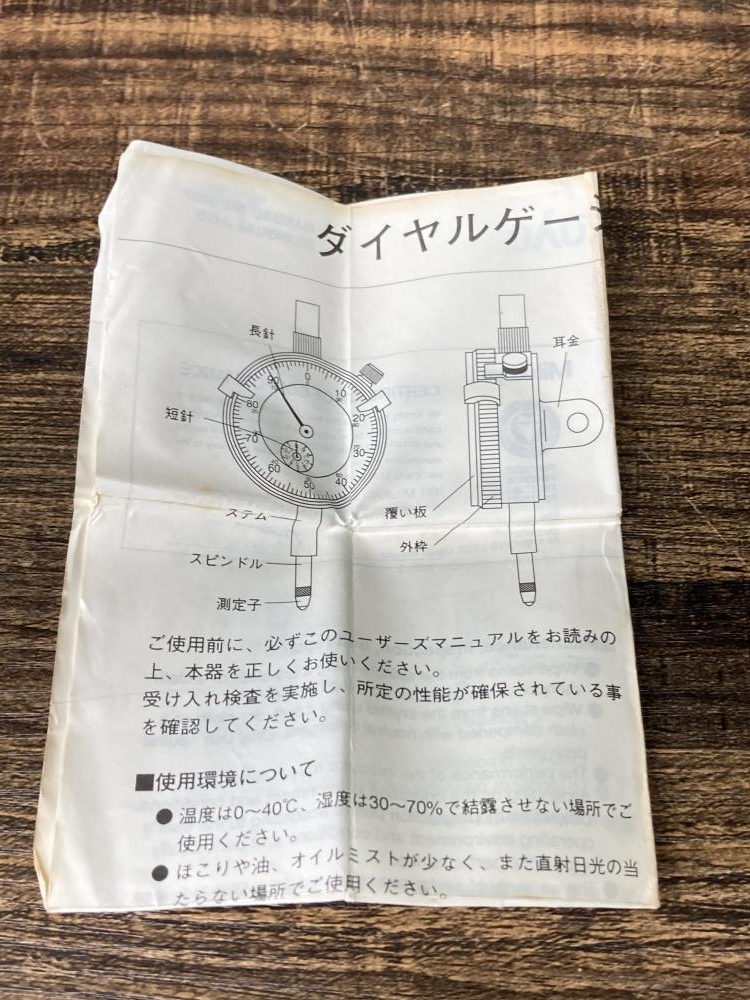 ダイヤルゲー
長針
耳金
0
90
10
80
20
短針
70
30
60
50
40
ステム
覆い板
外枠
スピンドル
測定子
ご使用前に、必ずこのユーザーズマニュアルをお読みの
上、本器を正しくお使いください。
受け入れ検査を実施し、所定の性能が確保されている事
を確認してください。
■使用環境について
● 温度は0〜40℃、湿度は30〜70%で結露させない場所でご
使用ください。
● ほこりや油、オイルミストが少なく、また直射日光の当
たらない場所でご使用ください。